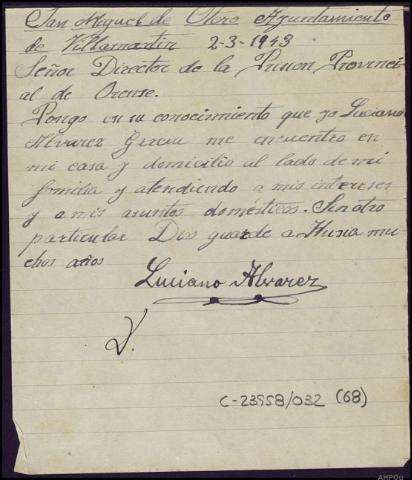 San Miguel de Otero Ayuntamiento
de Villamartin 2-3-1943
Señor Director de la Prision Provinci-
al de Orense.
Pongo en su conocimiento que yo Luciano
Alvarez Garcia me encuentro en
mi casa y domicilio al lado de mi
familia y atendiendo a mis intereses
y a mis asuntos domésticos. Sin otro
particular Dios guarde a Husia mu-
chos años
Luciano Alvarez
V.
C-23958/032 (68)
AHPOu